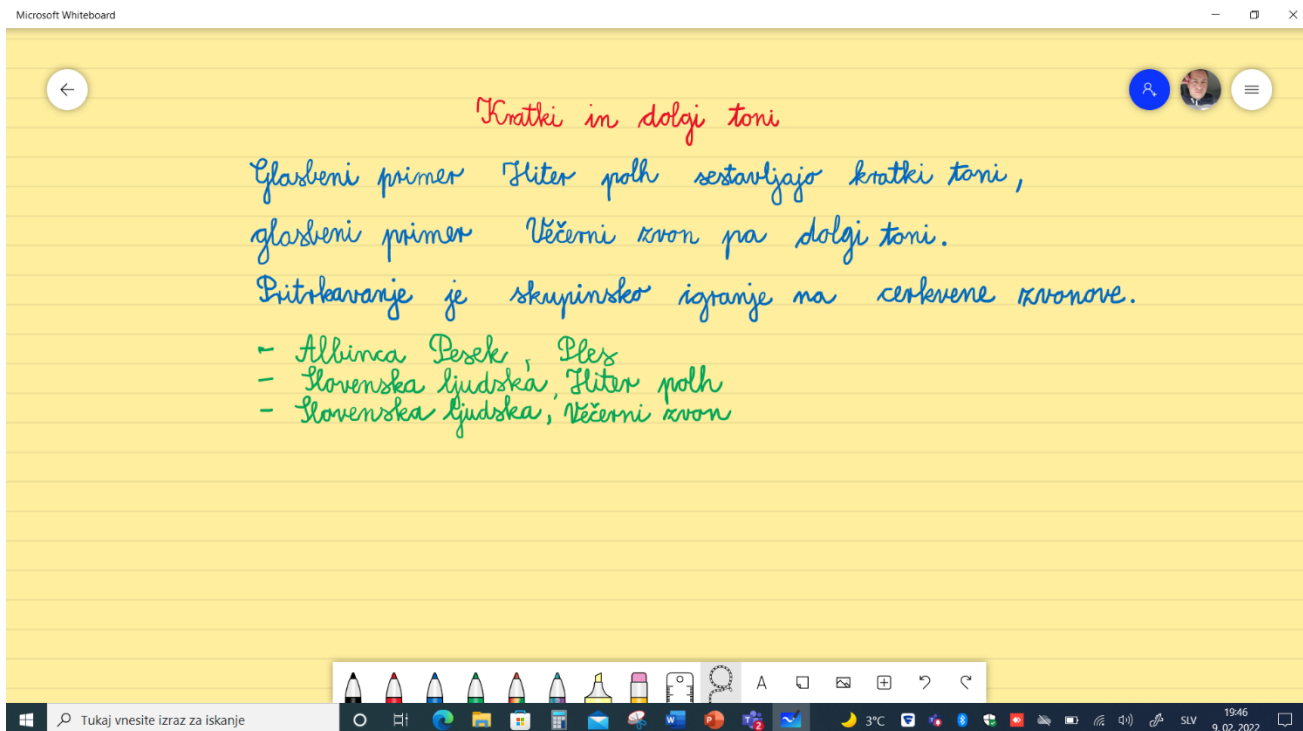 Microsoft Whiteboard
Kratki in dolgi toni
Glasbeni primer Hiter polh sestavljajo kratki toni,
glasbeni primer Večerni zvon pa dolgi toni.
Pritrkavanje je skupinsko igranje na cerkvene zvonove.
- Albinca Pesek, Ples
- Slovenska ljudska, Hiter polh
- Slovenska ljudska, Večerni zvon
A
Tukaj vnesite izraz za iskanje
3°C
SLV
19:46
9. 02. 2022